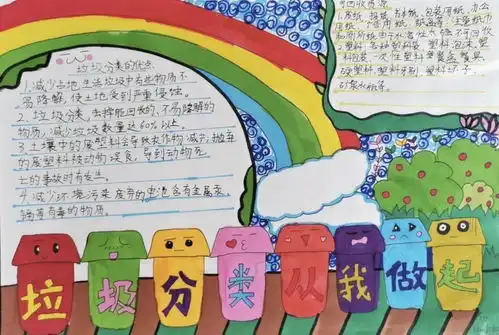 垃圾分类的优点
1.减少占地.生活垃圾中有些物质不
易降解,使土地受到严重侵蚀。
2.垃圾分类,去掉能回收的、不易降解的
物质,减少垃圾数量达60%以上
3.土壤中的废塑料会导致农作物减产,抛弃
的废塑料被动物误食,导到动物死
亡的事故时有发生。
4.减少环境污染.废弃的电池含有金属汞、
镉等有毒的物质。
可回收资源
1.废纸:报纸、
包装用纸、办公
用纸、广告用纸、纸盒等;
水溶性
不可回收
2.塑料:各种塑料袋、塑料泡沫、塑
料包装、一次性塑料餐盒餐具、
硬塑料、塑料牙刷、塑料杯子、
矿泉水瓶等。
垃圾分类从我做起